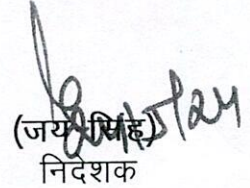 (जय सिंह)
निदेशक